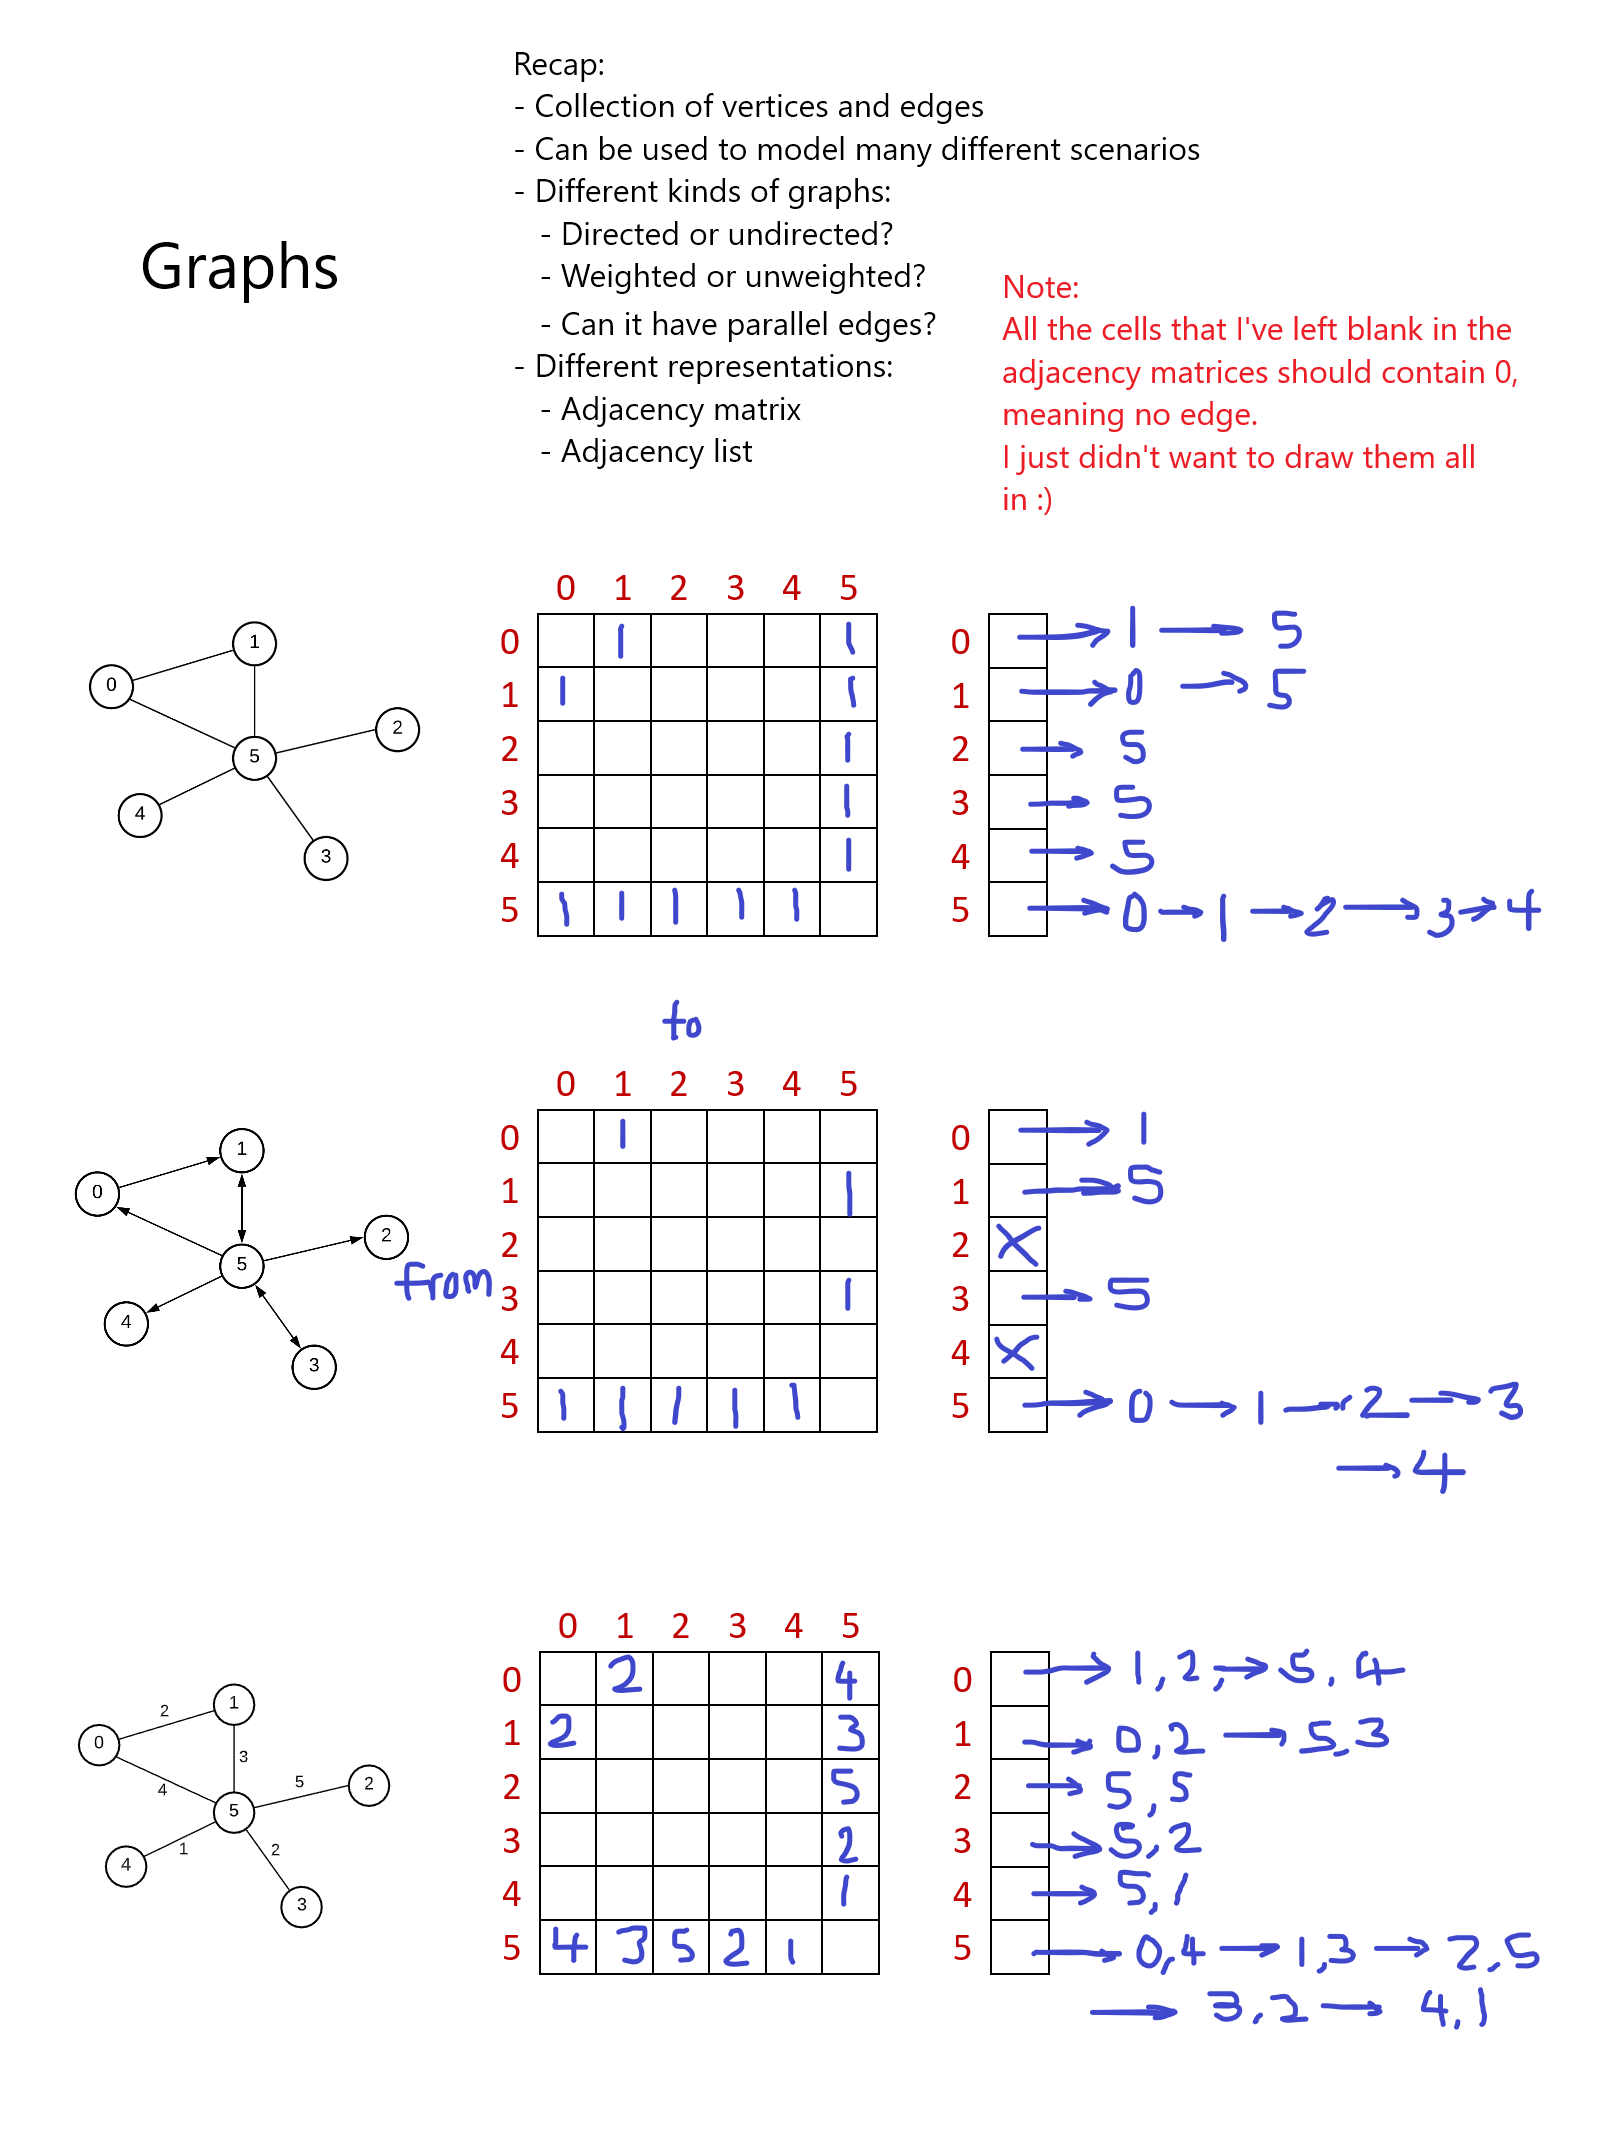 Recap:
- Collection of vertices and edges
- Can be used to model many different scenarios
- Different kinds of graphs:
- Directed or undirected?
Graphs
- Weighted or unweighted?
- Can it have parallel edges?
- Different representations:
- Adjacency matrix
- Adjacency list
Note:
All the cells that I've left blank in the
adjacency matrices should contain 0,
meaning no edge.
I just didn't want to draw them all
in :)
1
0
5
2
4
3
0 1 2 3 4 5
0 1 1
1 1 1
2 1
3 1
4 1
5 1 1 1 1 1
0 → 1 → 5
1 → 0 → 5
2 → 5
3 → 5
4 → 5
5 → 0 → 1 → 2 → 3 → 4
to
1
0
5
2
4
3
from
0 1 2 3 4 5
0 1
1 1
2
3 1
4
5 1 1 1 1 1
0 → 1
1 → 5
2 X
3 → 5
4 X
5 → 0 → 1 → 2 → 3
→ 4
1
2
0
3
5
2
4
5
1
2
4
3
0 1 2 3 4 5
0 2 4
1 2 3
2 5
3 2
4 1
5 4 3 5 2 1
0 → 1,2, → 5,4
1 → 0,2 → 5,3
2 → 5,5
3 → 5,2
4 → 5,1
5 → 0,4 → 1,3 → 2,5
→ 3,2 → 4,1